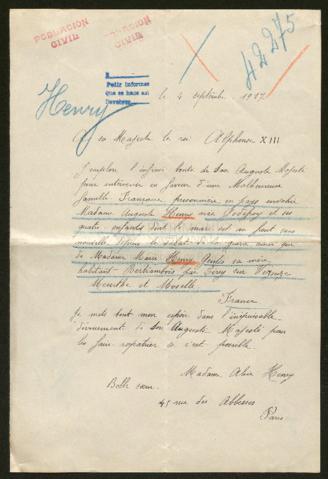 POBLACION
CIVIL
POBLACION
CIVIL
42275
Pedir informes
que se hace en
Henry
le 4 septembre 1917
A sa Majesté le roi Alphonse XIII
J'implore l'infinie bonté de Son Auguste Majesté
pour intervenir en faveur d'une Malheureuse
famille Française prisonnière en pays envahie
Madame Auguste Henry née et ses
quatre enfants dont le mari est au front sans
nouvelle depuis le début de la guerre ainsi que
de Madame Marie Henry sa mère
habitant Bertrambois par Cirey sur Vezouze
Meurthe et Moselle.
France
Je mets tout mon espoir dans l'inépuisable
dévouement de Son Auguste Majesté pour
les faire rapatrier si c'est possible.
Madame Henry
Belle sœur
45 rue des Abbesses
Paris